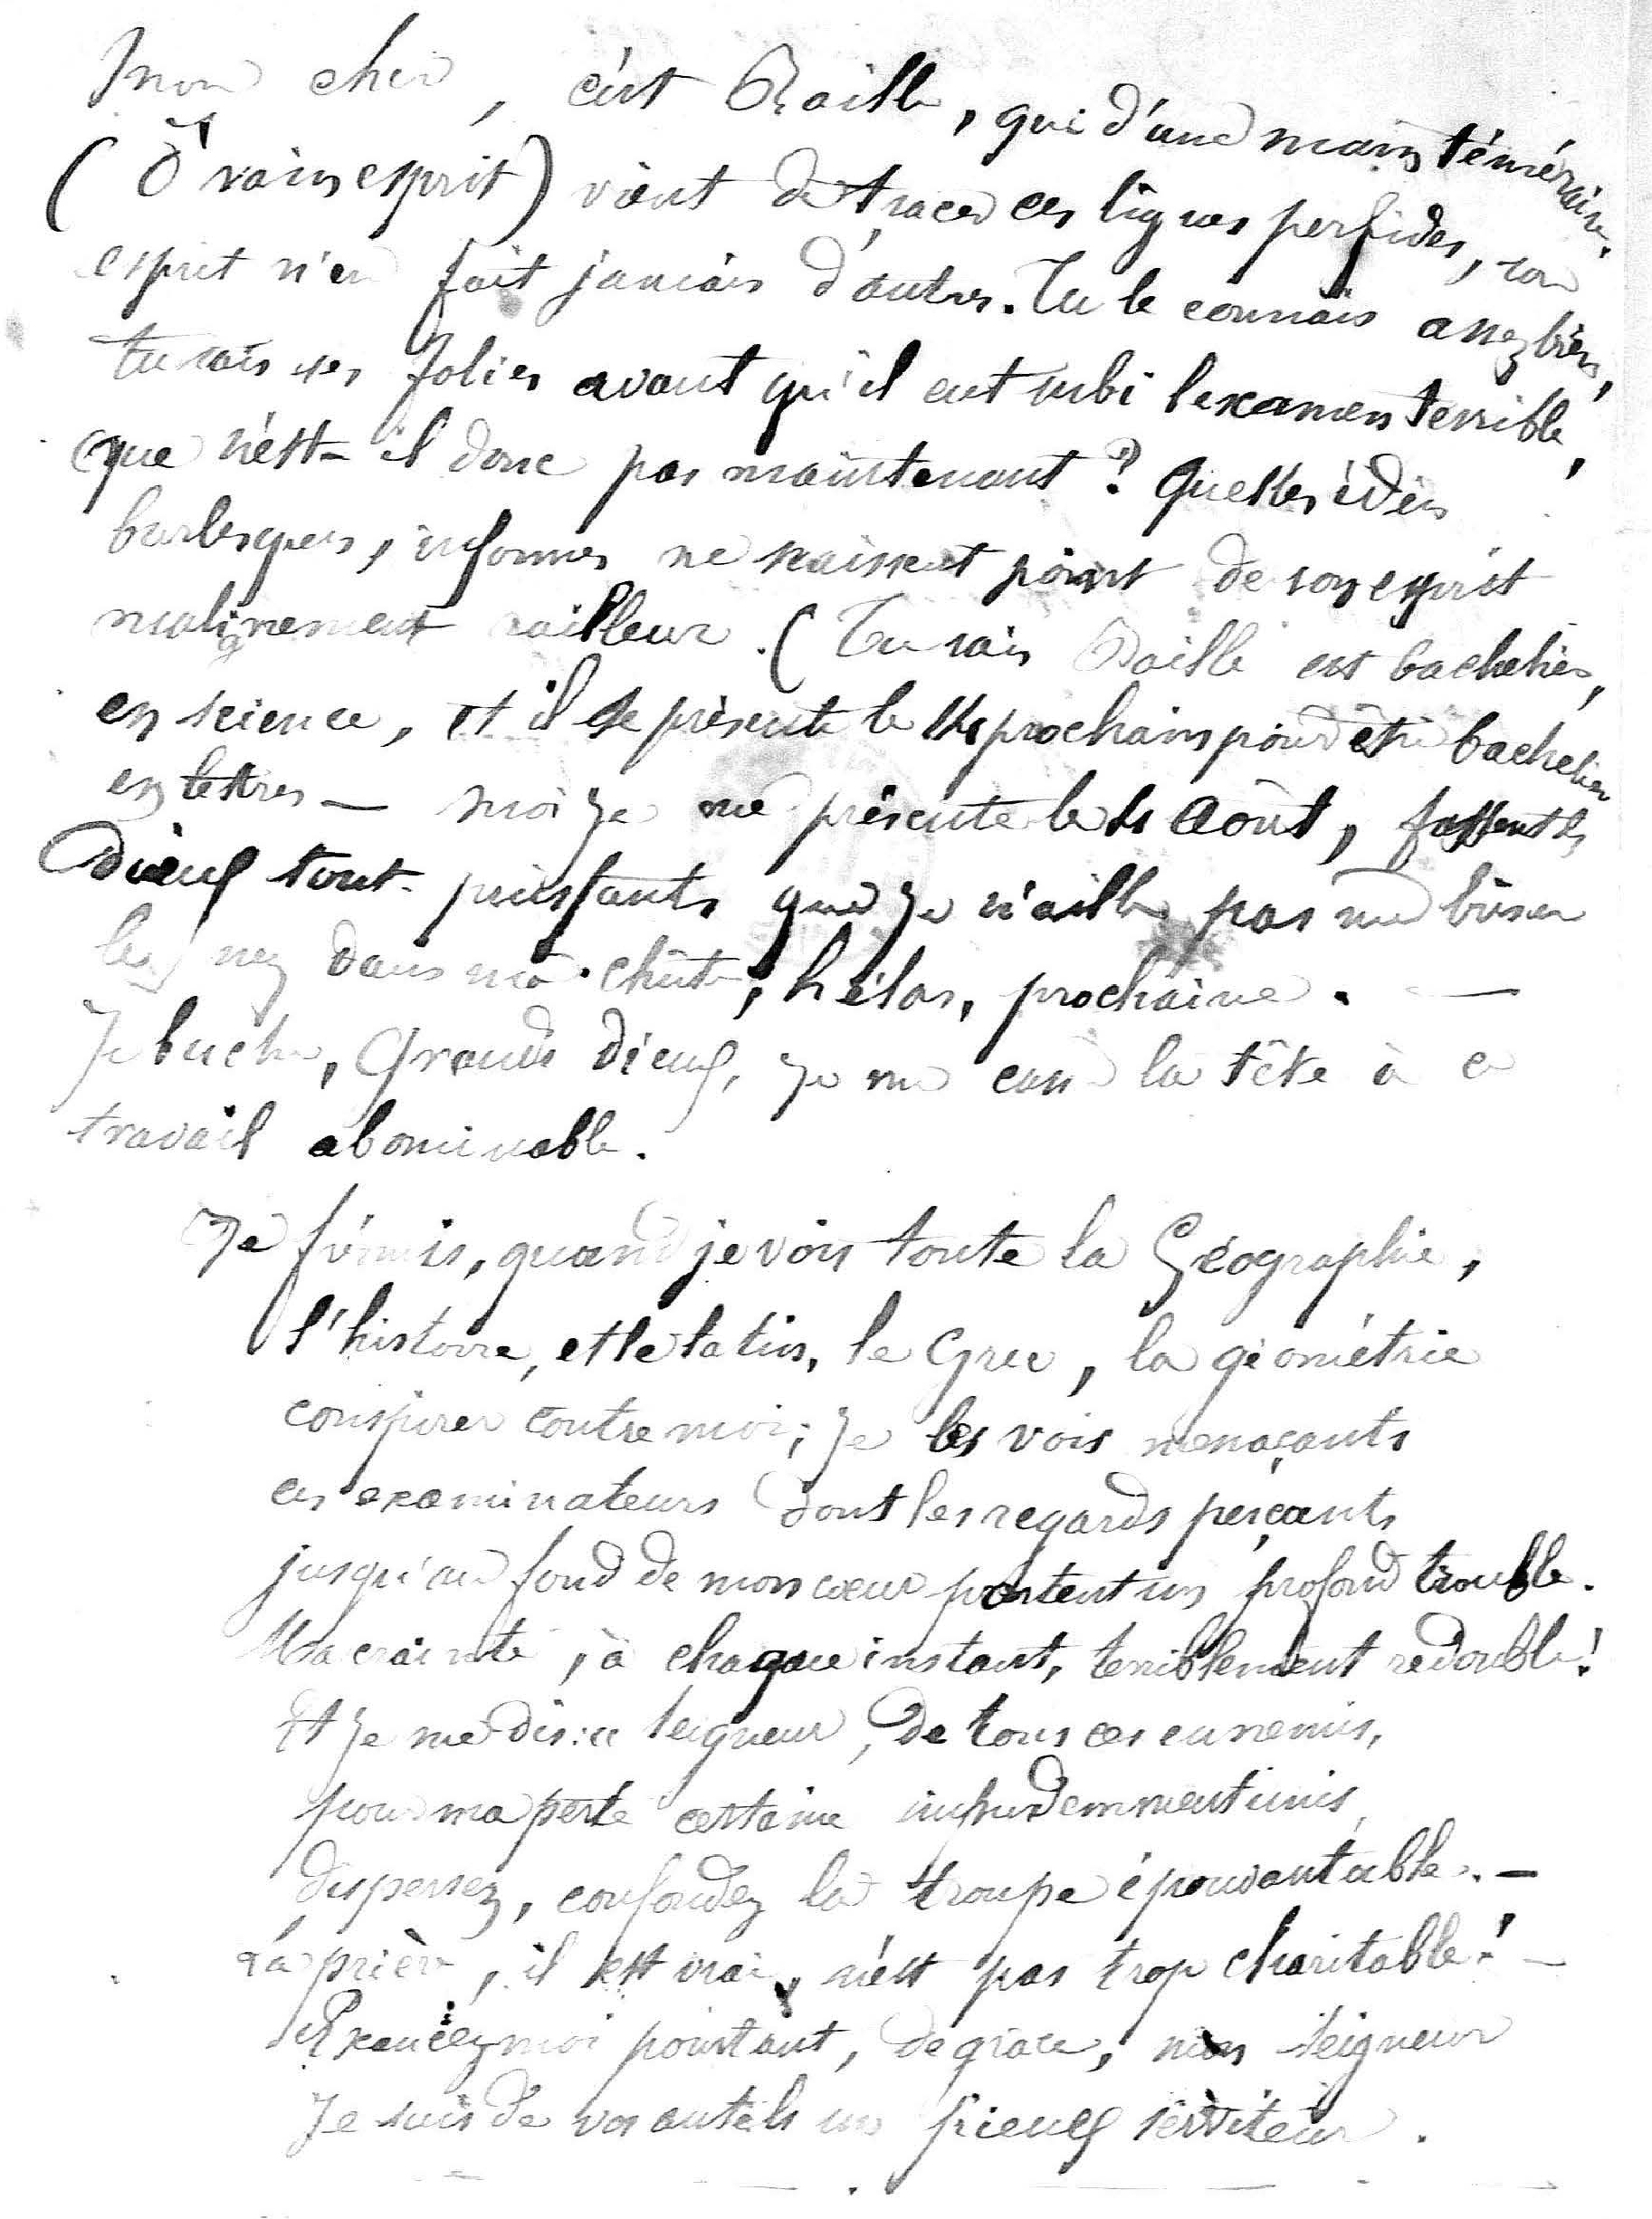 Mon cher, c'est Baille, qui d'une main téméraire.
(Ô vain esprit) vient de tracer ces lignes perfides, son
esprit n'en fait jamais d'autres. Tu le connais assez bien,
tu sais ses folies avant qu'il eut subi l'examen terrible,
que n'est-il donc pas maintenant? Quelles idées
burlesques, informes ne naissent point de son esprit
malignement railleur. (Tu sais Baille est bachelier,
en science, et il se présente le 14 prochain pour être bachelier
en lettres — moi je me présente le 4 Août, fassent les
Dieux tout-puissants que je n'aille pas me briser
le nez dans ma chute, hélas, prochaine. —
Je buche, Grands dieux, je me casse la tête à ce
travail abominable.
Je frémis, quand je vois toute la Géographie,
l'histoire, et le latin, le Grec, la géométrie
conspirer contre moi; je les vois menaçants
ces examinateurs dont les regards perçants
jusqu'au fond de mon cœur portent un profond trouble.
Ma crainte, à chaque instant, terriblement redouble!
Et je me dis: « Seigneur, de tous ces ennemis,
pour ma perte certaine impudemment unis,
dispersez, confondez la troupe épouvantable. —
La prière, il est vrai, n'est pas trop charitable! —
Exaucez moi pourtant, de grâce, mon Seigneur
Je suis de vos autels un pieux serviteur.